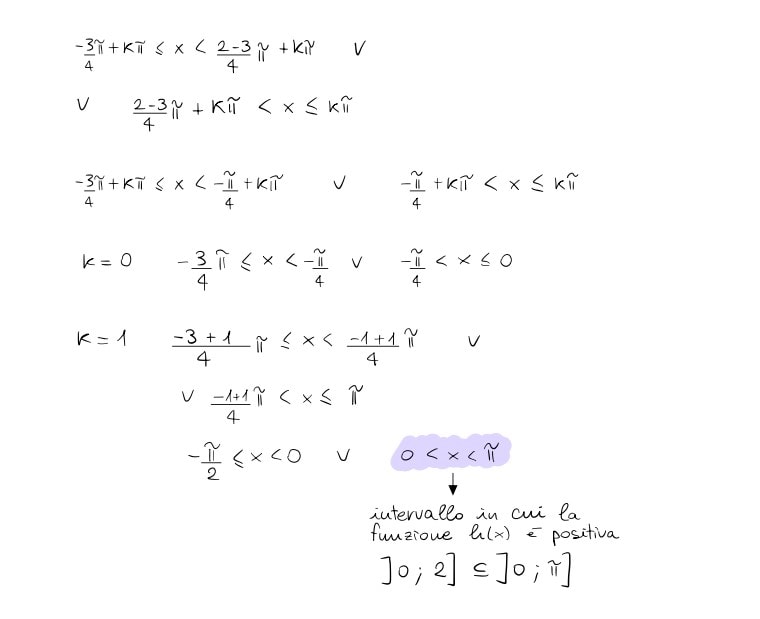 -3/4 π + kπ ≤ x < (2-3)/4 π + kπ ∨
∨ (2-3)/4 π + kπ < x ≤ kπ
-3/4 π + kπ ≤ x < -π/4 + kπ ∨ -π/4 + kπ < x ≤ kπ
k = 0 -3/4 π ≤ x < -π/4 ∨ -π/4 < x ≤ 0
k = 1 (-3+1)/4 π ≤ x < (-1+1)/4 π ∨
∨ (-1+1)/4 π < x ≤ π
-π/2 ≤ x < 0 ∨ 0 < x < π
intervallo in cui la
funzione h(x) è positiva
]0; 2] ⊆ ]0; π]